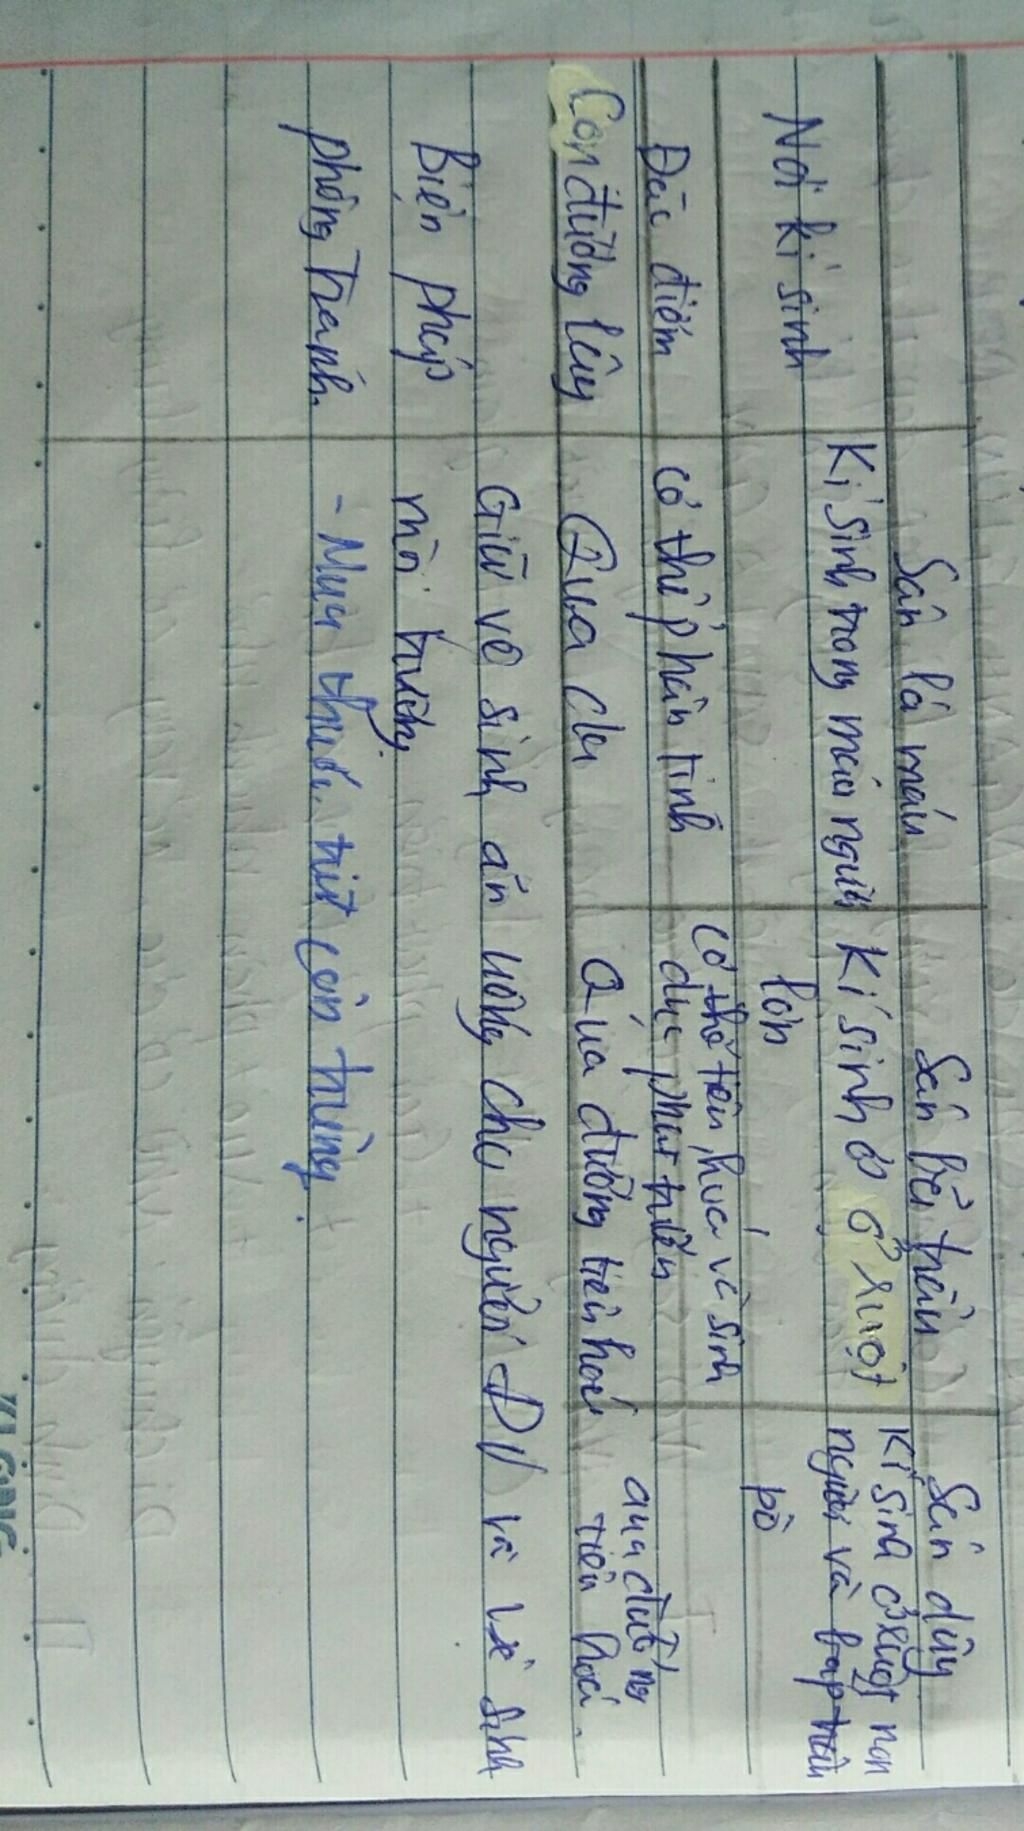 Sán lá máu Sán bã trầu Sán dây
Nơi kí sinh Kí sinh trong máu người Kí sinh ở ở ruột Kí sinh ở ruột non
lợn người và bắp
bò
Đặc điểm có thể phân tính có thể tiêu hoá và sinh
dục phát triển
Con đường lây Qua da Qua đường tiêu hoá qua đường
tiêu hoá.
Biện pháp Giữ vệ sinh ăn uống cho người ĐV và vệ sinh
phòng tránh. môi trường.
- Mua thuốc trừ côn trùng.